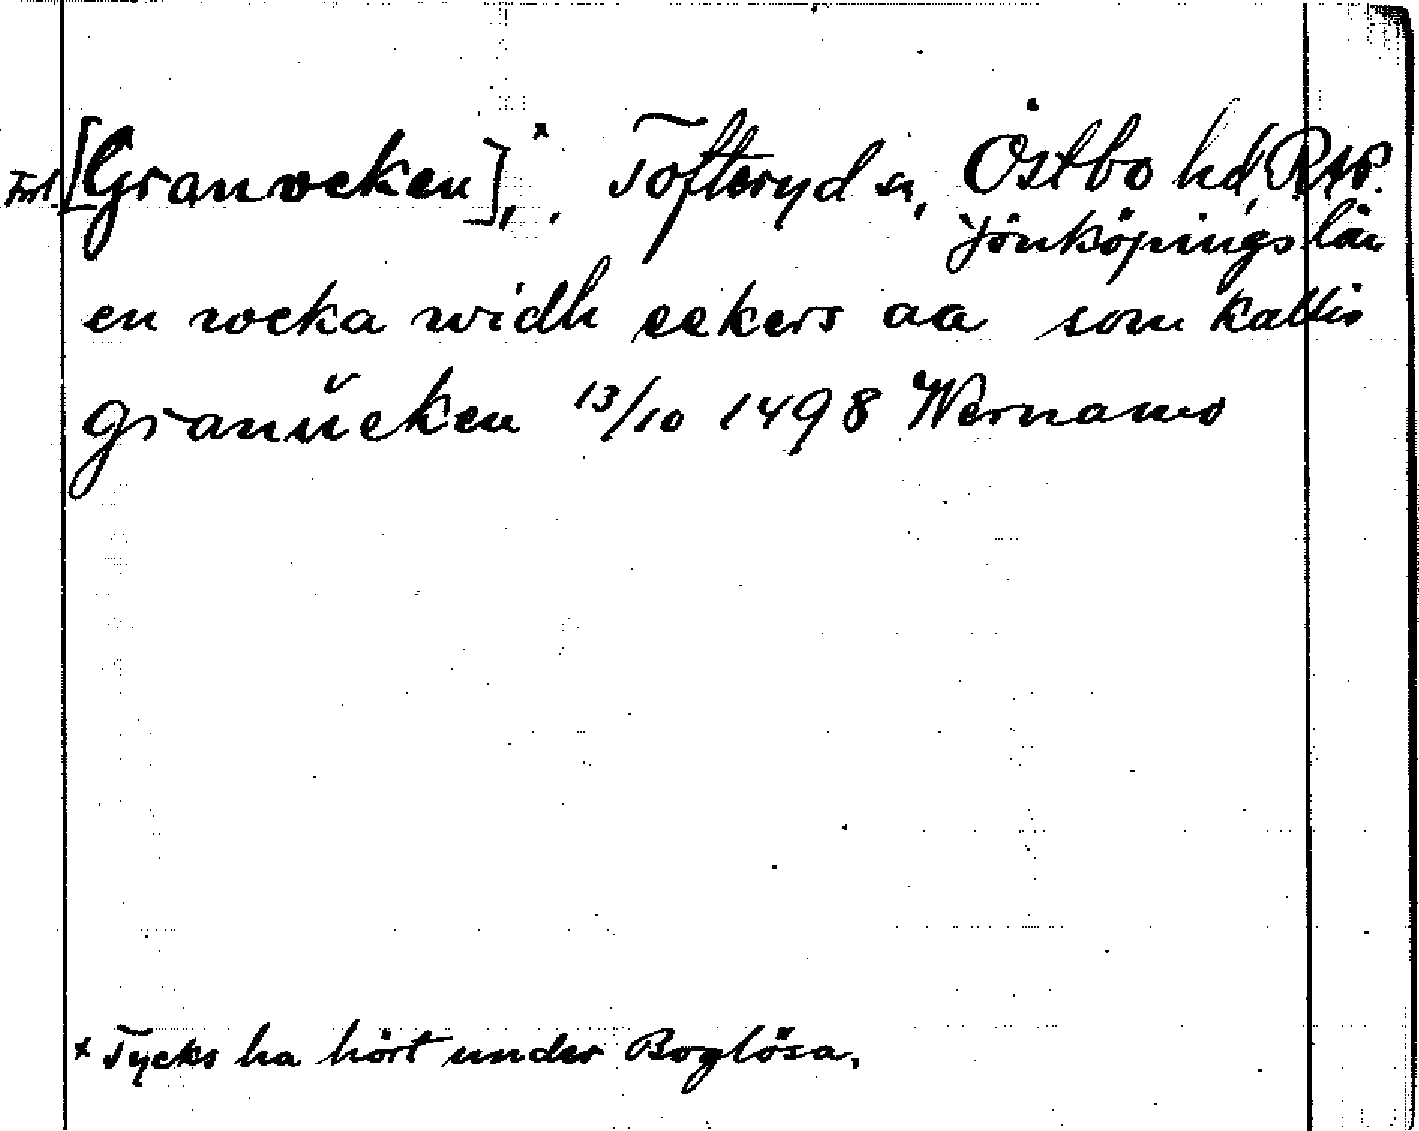 Förl. [Granvcken],ˣ, Tofteryd sn, Östbo hd, RAP.
Jönköpings län
en wcka widh eekers aa som kallis
granŭcken 13/10 1498 Wernamo
x Tycks ha hört under Boglösa.